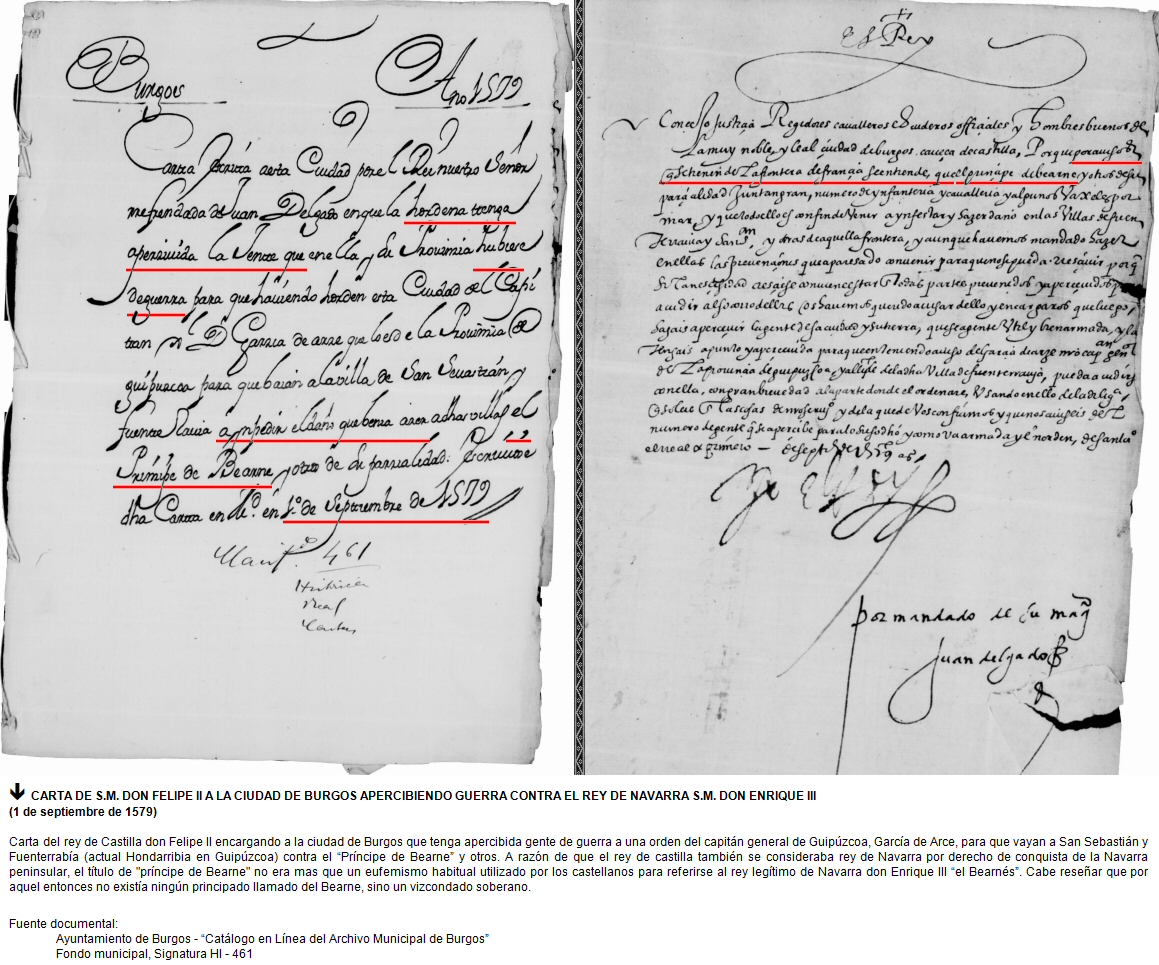 Burgos Año 1579
Carta escrita a esta Ciudad por el Rei nuestro Señor
refrendada de Juan Delgado en que la hordena tenga
apercivida la Jente que en ella y su Provinzia hubiese
de guerra para que haviendo horden esta Ciudad del Capi
tan D Garzia de arze que lo es de la Provinzia de
guipuzcoa para que baian a la villa de San Sevastián y
fuente Ravia a inpedir el daño que benia a azer a dhas villas el
Prínzipe de Bearne y otros de su parzialidad.
dha Carta en M.d en 1.º de Septiembre de 1579
461
Real
Cartas
El Rey
Concejo Justiçia Regidores cavalleros escuderos offiçiales y hombres buenos de
la muy noble y leal ciudad de burgos. caveça de castilla, Porque por avisos
de la frontera de françia se entiende, que el prinçipe de bearne y otros de su
parçialidad Juntan gran numero de ynfanteria y cavalleria y algunos vaxeles por
mar, y que todo ello es con fin de venir a ynfestar y hazer daño en las villas de fuen
terravia y San, y otras de aquella frontera, y aunque havemos mandado hazer
en ellas las prevençiones que a paresçido convenir para que no se pueda
a cudir al socorro dellas os havemos querido avisar dello y encargaros que luego
hagais aperçivir la gente de esa ciudad y su tierra, que sea gente util y bien armada, y la
tengais a punto y aperçevida para que en teniendo aviso de Garçia de arze nro cap gen
de la provinçia de guipuzcoa, y alcayde de la dha villa de fuenterravia, pueda acudir
con ella, con gran brevedad a la parte donde el ordenare, Usando en ello de la
numero de gente q se aperçibe para lo susodho y como va armada y el horden, de San
el real a primero de septie de 1579 as
Yo el Rey
por mandado de su mag
Juan delgado
CARTA DE S.M. DON FELIPE II A LA CIUDAD DE BURGOS APERCIBIENDO GUERRA CONTRA EL REY DE NAVARRA S.M. DON ENRIQUE III
(1 de septiembre de 1579)
Carta del rey de Castilla don Felipe II encargando a la ciudad de Burgos que tenga apercibida gente de guerra a una orden del capitán general de Guipúzcoa, García de Arce, para que vayan a San Sebastián y
Fuenterrabía (actual Hondarribia en Guipúzcoa) contra el “Príncipe de Bearne” y otros. A razón de que el rey de castilla también se consideraba rey de Navarra por derecho de conquista de la Navarra
peninsular, el título de "príncipe de Bearne" no era mas que un eufemismo habitual utilizado por los castellanos para referirse al rey legítimo de Navarra don Enrique III “el Bearnés”. Cabe reseñar que por
aquel entonces no existía ningún principado llamado del Bearne, sino un vizcondado soberano.
Fuente documental:
Ayuntamiento de Burgos - “Catálogo en Línea del Archivo Municipal de Burgos”
Fondo municipal, Signatura HI - 461